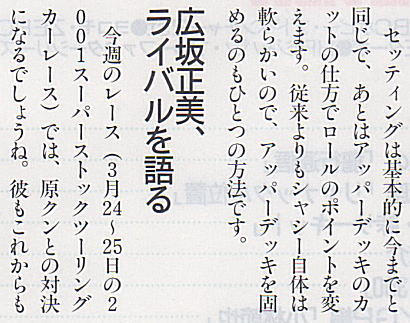 セッティングは基本的に今までと
同じで、あとはアッパーデッキのカ
ットの仕方でロールのポイントを変
えます。従来よりもシャシー自体は
軟らかいので、アッパーデッキを固
めるのもひとつの方法です。
広坂正美、
ライバルを語る
今週のレース（3月24〜25日の2
001スーパーストックツーリング
カーレース）では、原クンとの対決
になるでしょうね。彼もこれからも